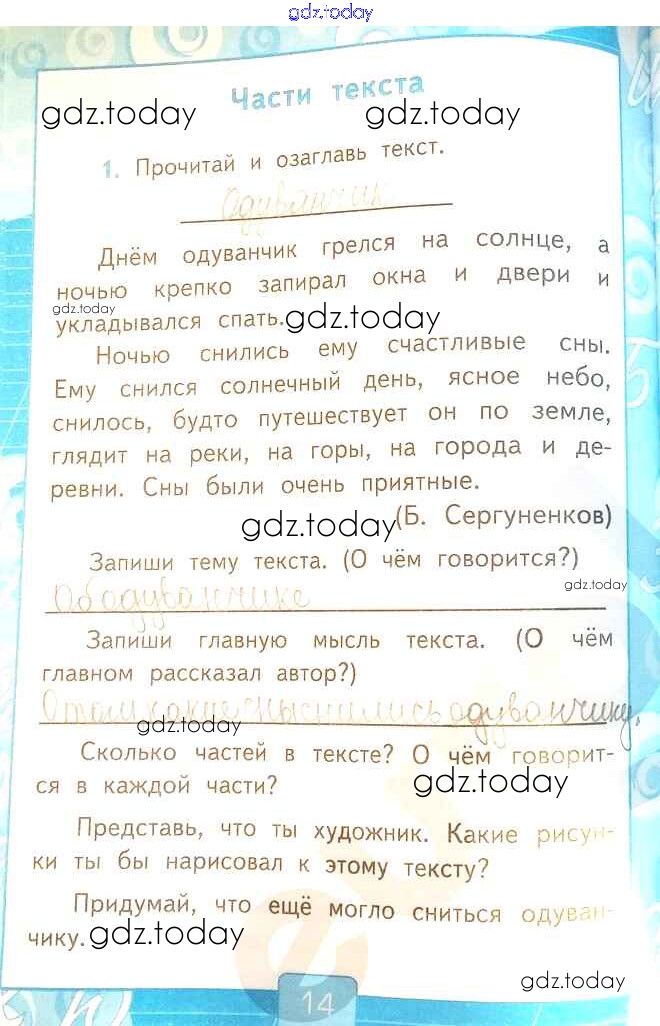 gdz.today
Части текста
gdz.today gdz.today
1. Прочитай и озаглавь текст.
Одуванчик
Днём одуванчик грелся на солнце, а
ночью крепко запирал окна и двери и
gdz.today
укладывался спать.
gdz.today
Ночью снились ему счастливые сны.
Ему снился солнечный день, ясное небо,
снилось, будто путешествует он по земле,
глядит на реки, на горы, на города и де-
ревни. Сны были очень приятные.
gdz.today
(Б. Сергуненков)
Запиши тему текста. (О чём говорится?)
gdz.today
Об одуванчике
Запиши главную мысль текста. (О чём
главном рассказал автор?)
О том какие сны снились одуванчику.
gdz.today
Сколько частей в тексте? О чём говорит-
ся в каждой части?
gdz.today
Представь, что ты художник. Какие рисун-
ки ты бы нарисовал к этому тексту?
Придумай, что ещё могло сниться одуван-
чику.
gdz.today
gdz.today
14